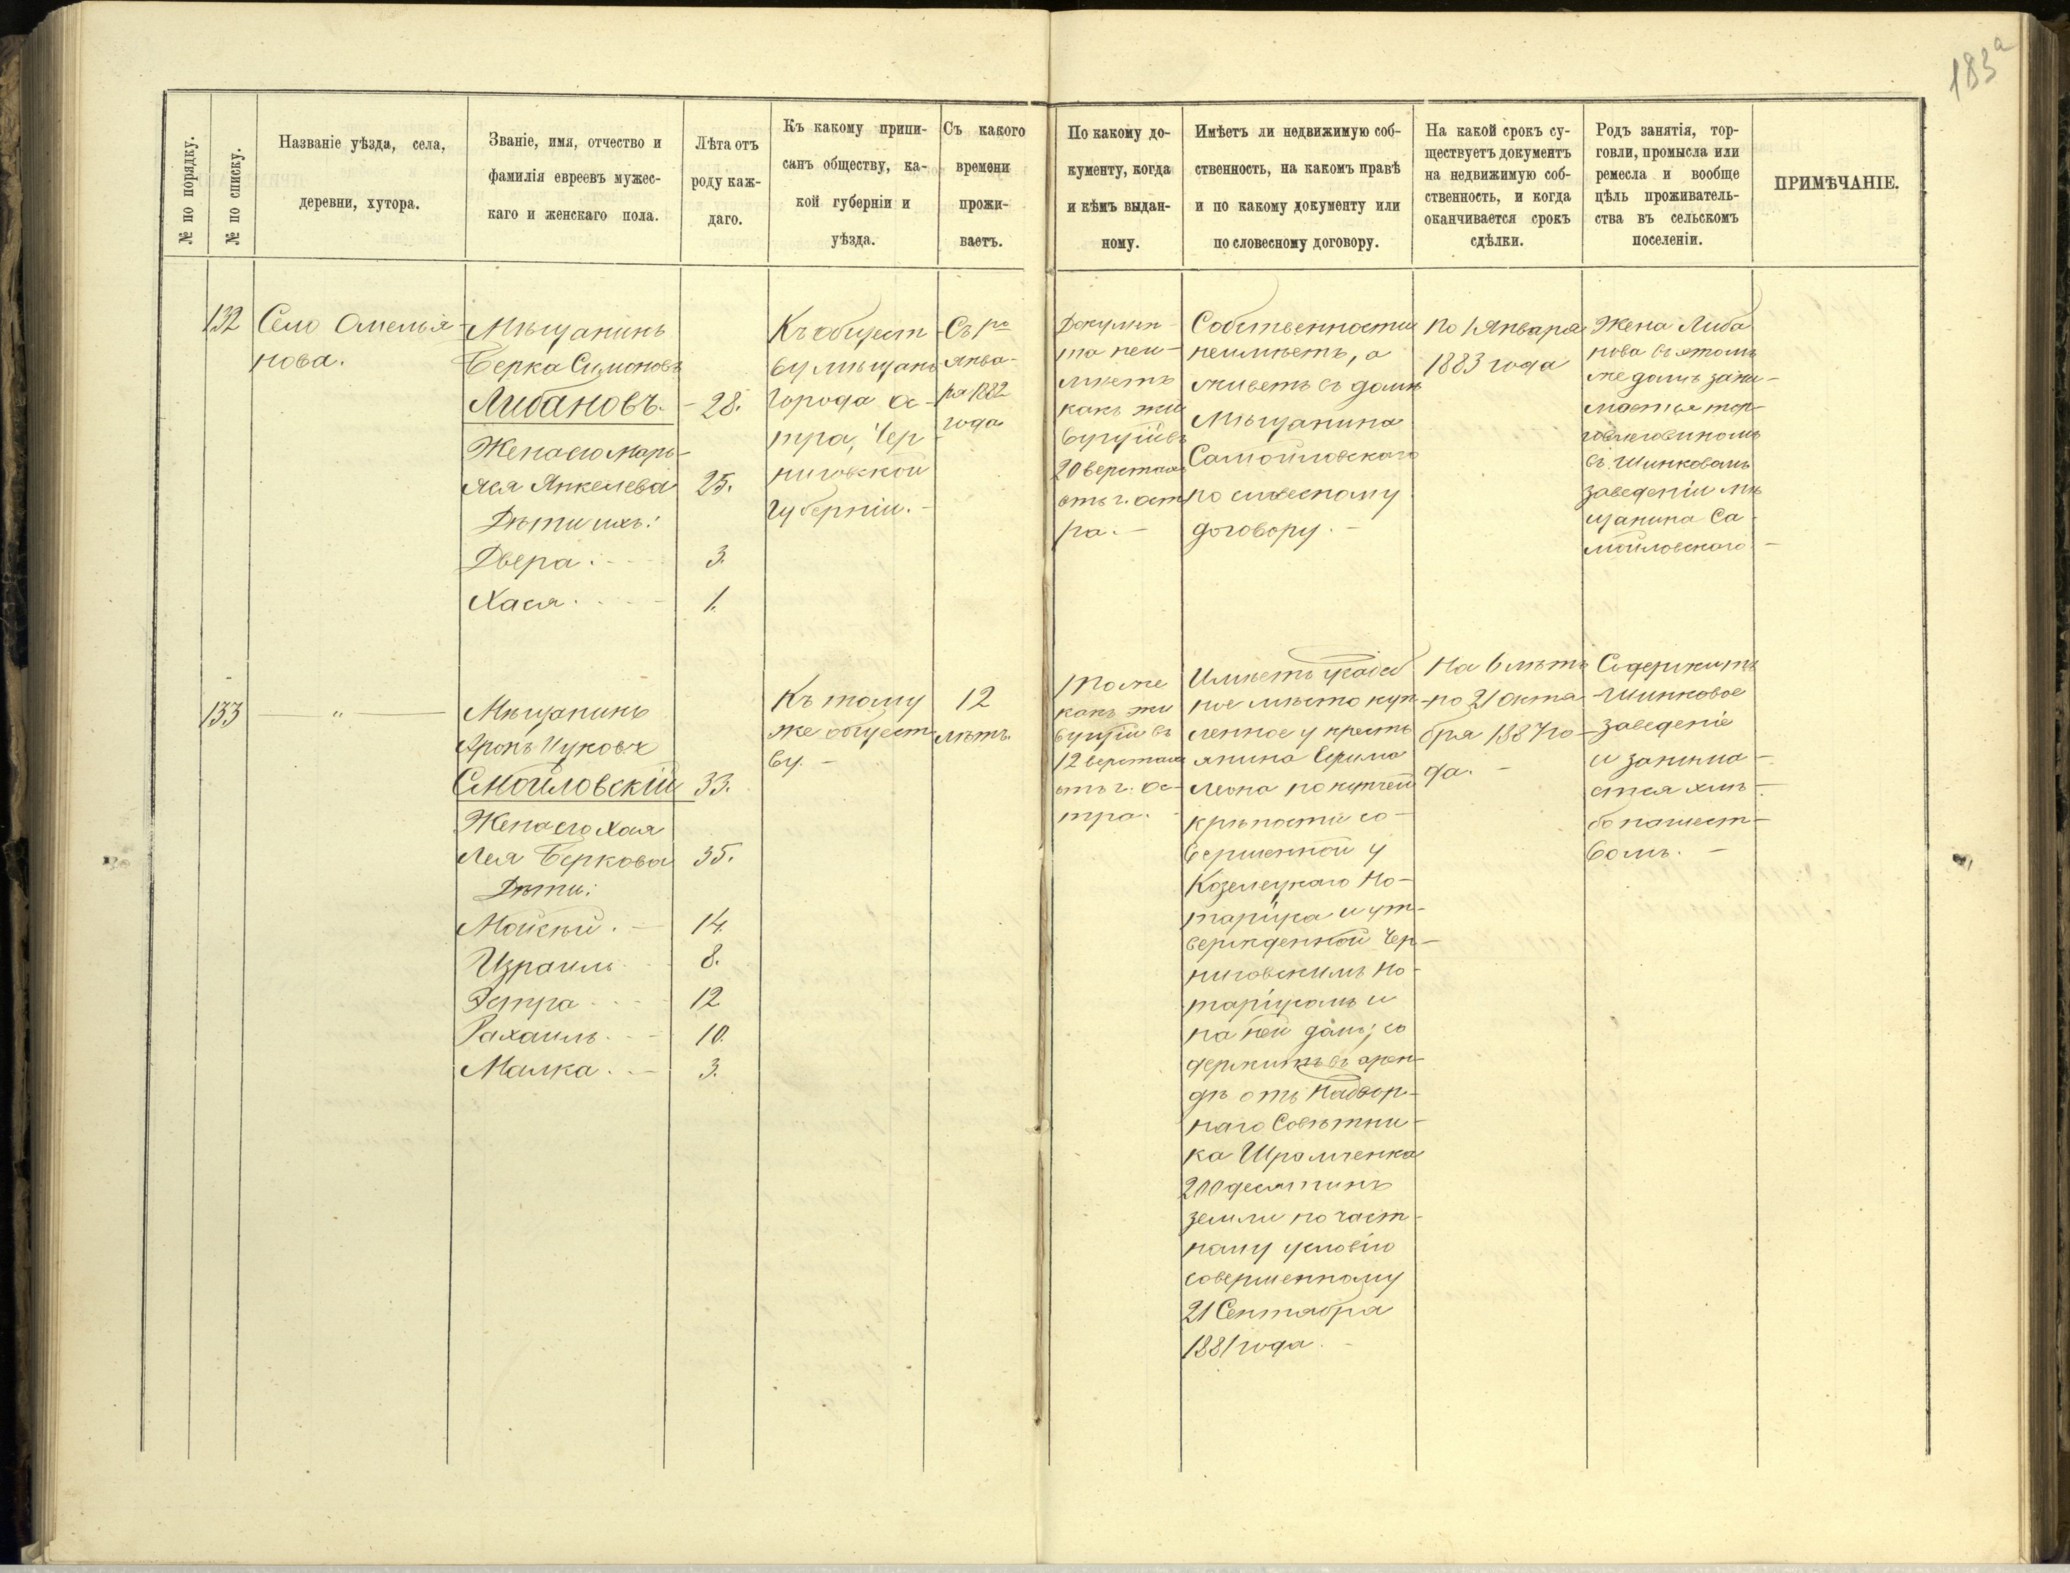 183а
№ по порядку.
№ по списку.
Названіе уѣзда, села,
деревни, хутора.
Званіе, имя, отчество и
фамилія евреевъ мужес-
каго и женскаго пола.
Лѣта отъ
роду каж-
даго.
Къ какому припи-
санъ обществу, ка-
кой губерніи и
уѣзда.
Съ какого
времени
прожи-
ваетъ.
По какому до-
кументу, когда
и кѣмъ выдан-
ному.
Имѣетъ ли недвижимую соб-
ственность, на какомъ правѣ
и по какому документу или
по словесному договору.
На какой срокъ су-
ществуетъ документъ
на недвижимую соб-
ственность, и когда
оканчивается срокъ
сдѣлки.
Родъ занятія, тор-
говли, промысла или
ремесла и вообще
цѣль проживатель-
ства въ сельскомъ
поселеніи.
ПРИМѢЧАНІЕ.
132
Село Омелья-
нова.
Мѣщанинъ
Берка Симоновъ
Либановъ. - 28.
Жена его Марь-
яся Янкелева 25.
Дѣти ихъ:
Двера. 3.
Хася. 1.
Къ общест-
ву мѣщанъ
города Ос-
тра, Чер
ниговской
Губерніи. -
Съ 1го
Янва-
ря 1882
года
Докумен
та неи-
мѣетъ
какъ жи
вущій въ
20 верстахъ
отъ г. Ост
ра. -
Собственности
неимѣетъ, а
живетъ въ домѣ
Мѣщанина
Самойловскаго
по словесному
договору. -
По 1 Января
1883 года
Жена Либа
нова въ этомъ
же домѣ зани-
мается тор-
говлею виномъ
въ шинковомъ
заведеніи мѣ
щанина Са
мойловскаго. -
133
— " —
Мѣщанинъ
Аронъ Ицковъ
Смойловскій 33.
Жена его Хая
Лея Беркова 35.
Дѣти:
Мойсѣй. - 14.
Израиль 8.
Эстра 12
Рахаиль 10.
Малка. 3.
Къ тому
же общест
ву. -
12
лѣтъ.
Тоже
какъ жи
вущій въ
12 верстахъ
отъ г. Ос-
тра. -
Имѣетъ усадеб
ное мѣсто куп-
ленное у кресть
янина
по купчей
крѣпости со-
вершенной у
Козелецкаго Но-
таріуса и ут-
вержденной Чер-
ниговскимъ Но-
таріусомъ и
на ней домъ; со
держитъ въ арен-
дѣ отъ Надвор-
наго Совѣтни-
ка Шрамченка
200 десятинъ
земли по част-
ному условію
совершенному
21 Сентября
1881 года. -
На 6 лѣтъ
по 21 Октя-
бря 1887 го-
да. -
Содержитъ
шинковое
заведеніе
и занима-
ется хлѣ-
бопашест-
вомъ. -